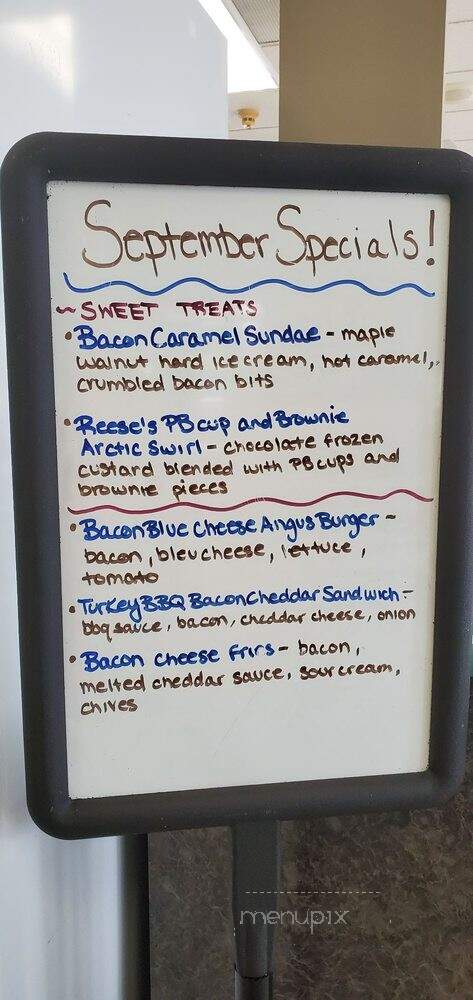 September Specials!
~ SWEET TREATS
• Bacon Caramel Sundae - maple
walnut hard ice cream, hot caramel,
crumbled bacon bits
• Reese's PB cup and Brownie
Arctic Swirl - chocolate frozen
custard blended with PB cups and
brownie pieces
• Bacon Blue Cheese Angus Burger -
bacon, bleu cheese, lettuce,
tomato
• Turkey BBQ Bacon Cheddar Sandwich -
bbq sauce, bacon, cheddar cheese, onion
• Bacon cheese frirs - bacon,
melted cheddar sauce, sour cream,
chives
menupix